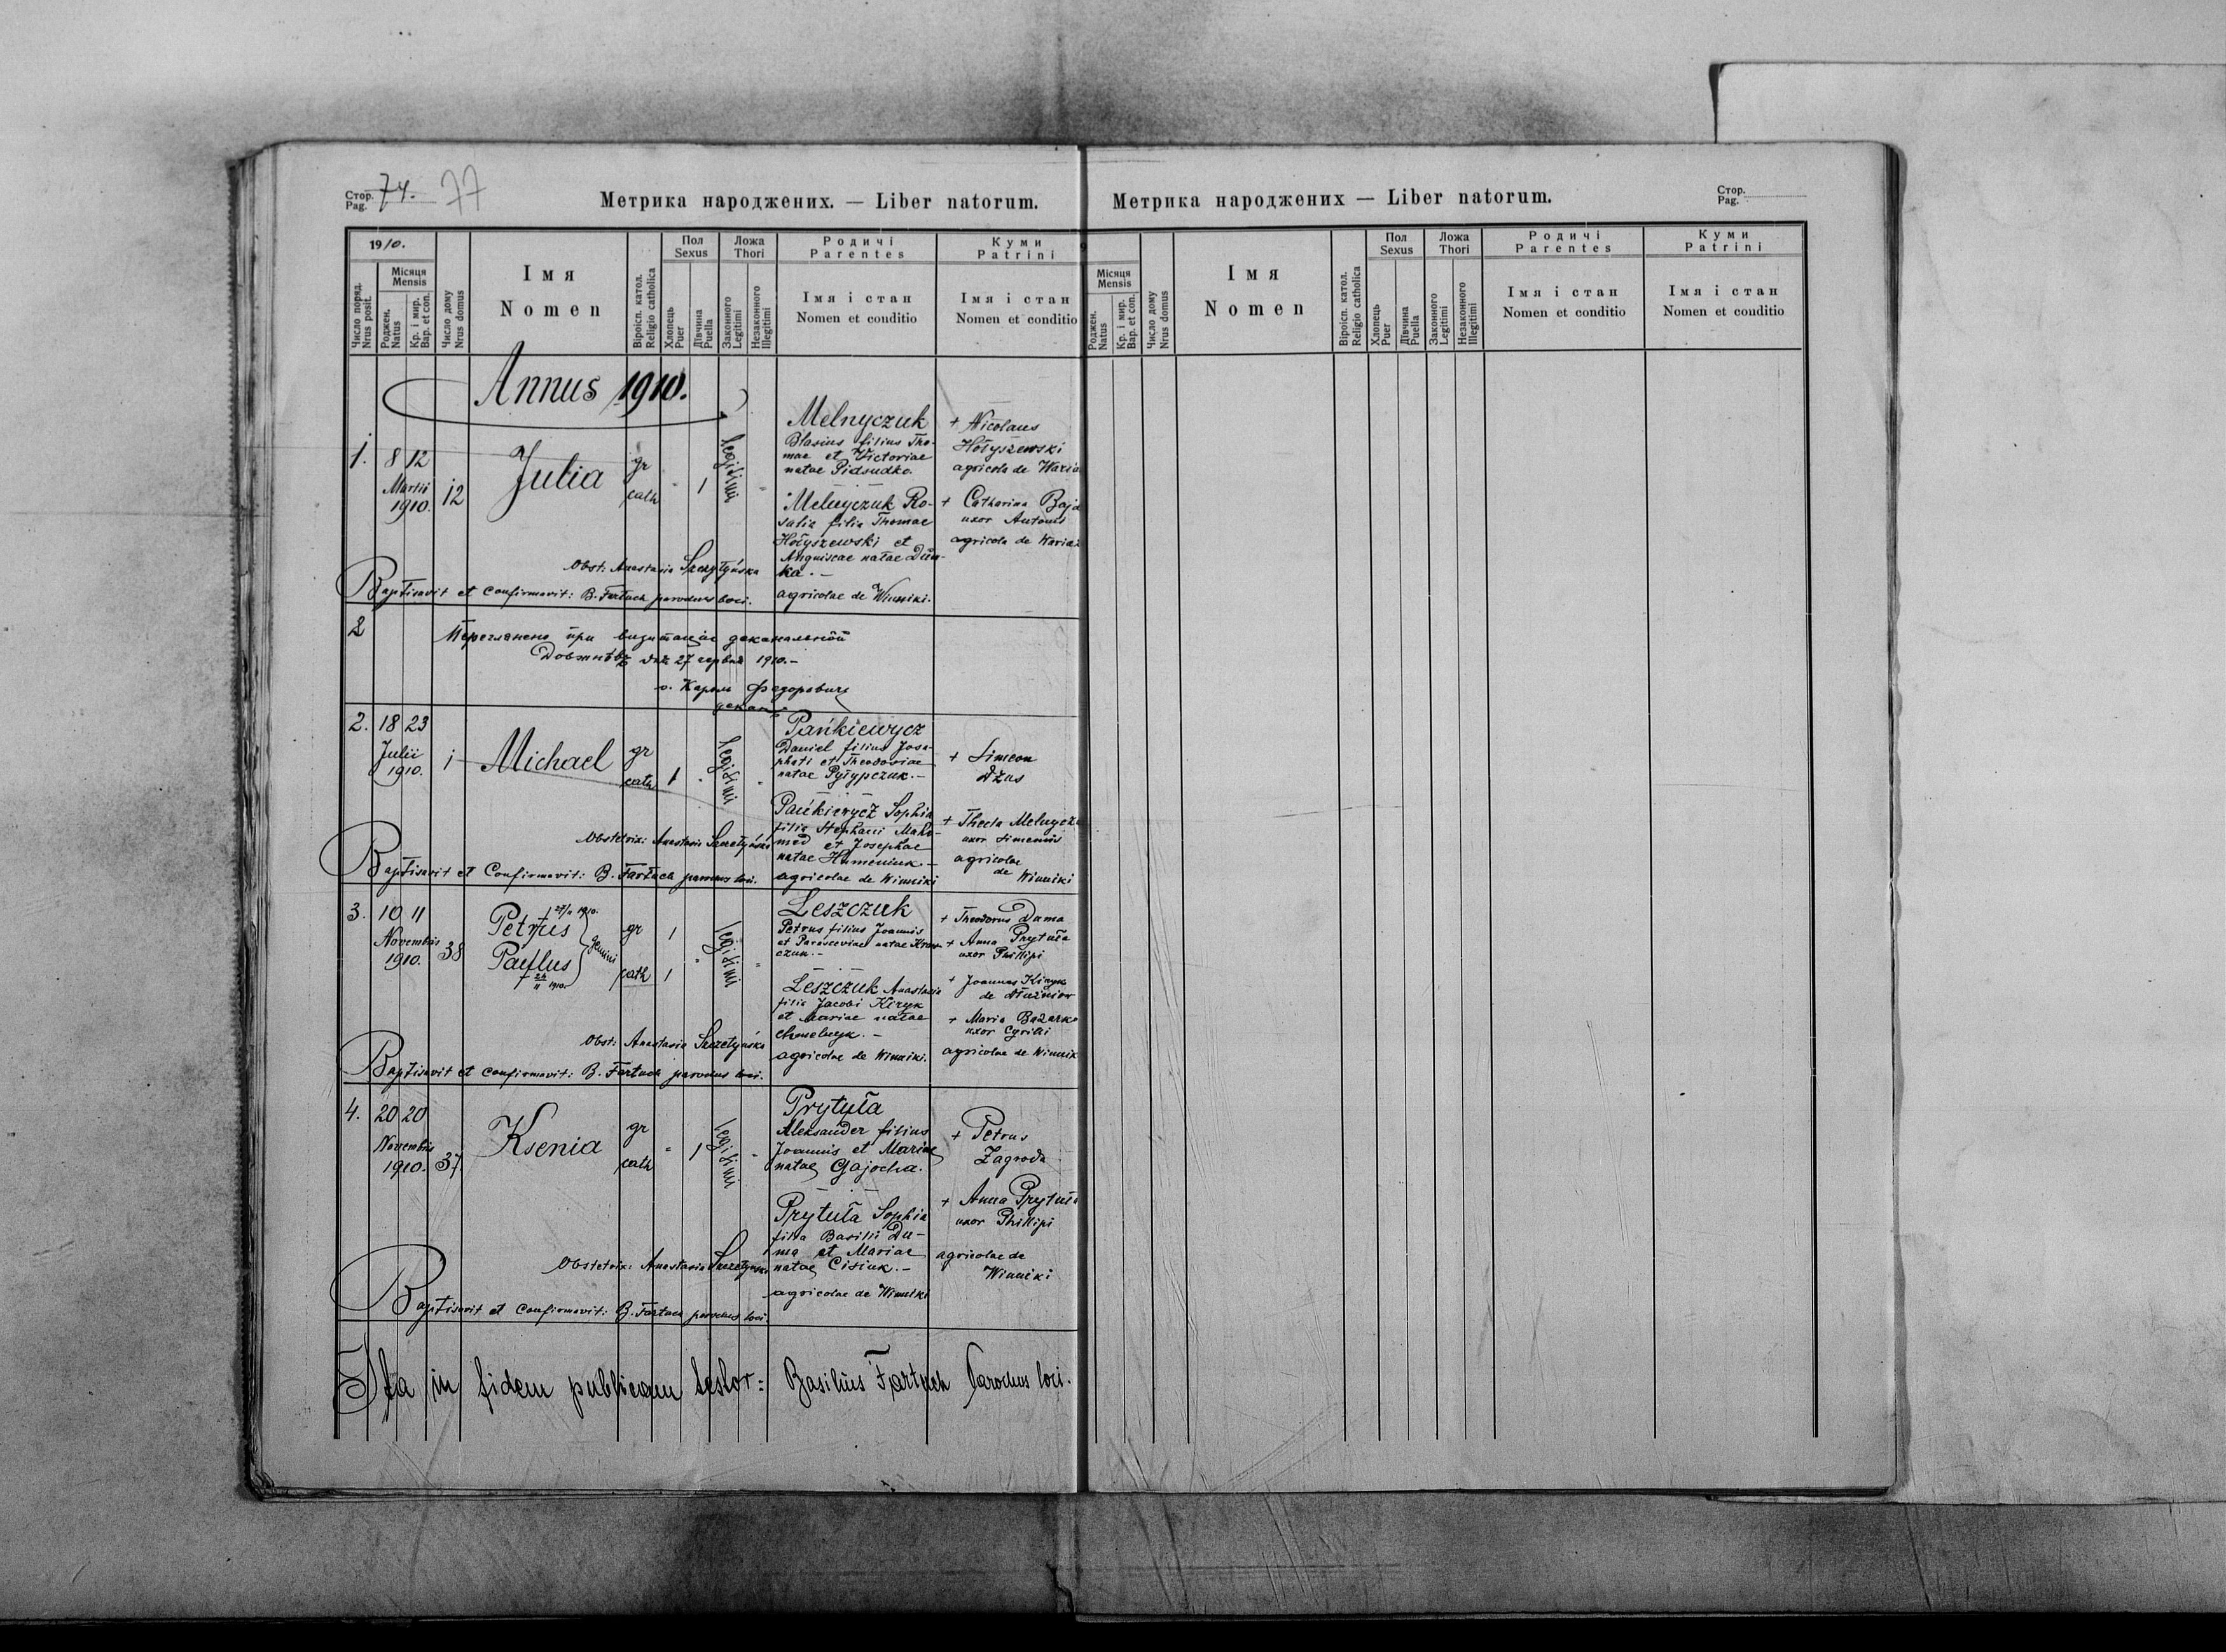 Стор. 74. 77
Pag.
Метрика народжених. — Liber natorum.
1910.
Число поряд.
Nrus posit.
Місяця
Mensis
Роджен.
Natus
Кр. і мир.
Bap. et con.
Число дому
Nrus domus
Імя
Nomen
Віроісп. катол.
Religio catholica
Пол
Sexus
Хлопець
Puer
Дівчина
Puella
Ложа
Thori
Законного
Legitimi
Незаконного
Illegitimi
Родичі
Parentes
Імя і стан
Nomen et conditio
Куми
Patrini
Імя і стан
Nomen et conditio
Annus 1910.
1. 8 12
Martii
1910.
12
Julia
gr
cath
" 1
legitimi
"
Melnyczuk
Blasius filius Tho-
mae et Victoriae
natae Pidsudko.
Melnyczuk Ro-
salia filia Thomae
Hołyszewski et
natae Dum-
ka. —
agricolae de Winniki.
+ Nicolaus
Hołyszewski
agricola de
+ Catharina
uxor Antonii
agricola de
Obst: Anastasia
Baptisavit et Confirmavit: B. Fartuch parochus loci.
2
при
27 червня 1910. —
о. Кароль
декан
2. 18 23
Julii
1910.
1
Michael
gr
cath
1 "
legitimi
"
Pańkiewycz
Daniel filius Josa-
phati et Theodosiae
natae Pyłypczuk. —
Pańkiewycz Sophia
filia Stephani
et Josephae
natae Humeniuk —
agricolae de Winniki
+ Simeon
Dżus
+ Thecla
uxor Simeonis
agricolae
de Winniki
Obstetrix: Anastasia
Baptisavit et Confirmavit: B. Fartuch parochus loci.
3. 10 11
Novembris
1910.
38
Petrus
Paulus
gemini
gr 1
cath 1
"
legitimi
"
Leszczuk
Petrus filius Joannis
et Parasceviae natae Kraw-
czuk. —
Leszczuk Anastasia
filia Jacobi Kiryk
et Mariae natae
agricolae de Winniki.
+ Theodorus Duma
+ Anna Prytuła
uxor Phillipi
+ Joannes Kiryk
de
+ Maria
uxor Cyrilli
agricolae de Winnik
Obst: Anastasia
Baptisavit et Confirmavit: B. Fartuch parochus loci.
4. 20 20
Novembris
1910.
37
Ksenia
gr
cath
" 1
legitimi
"
Prytuła
Aleksander filius
Joannis et Mariae
natae Gajocha.
Prytuła Sophia
filia Basilii Du-
ma et Mariae
natae Cisiuk. —
agricolae de Winniki
+ Petrus
Zagroda
+ Anna Prytuła
uxor Phillipi
agricolae de
Winniki
Obstetrix: Anastasia
Baptisavit et Confirmavit: B. Fartuch parochus loci.
Ita in fidem publicam testor: Basilius Fartuch Parochus loci.
Метрика народжених — Liber natorum.
Стор.
Pag.
Місяця
Mensis
Роджен.
Natus
Кр. і мир.
Bap. et con.
Число дому
Nrus domus
Імя
Nomen
Віроісп. катол.
Religio catholica
Пол
Sexus
Хлопець
Puer
Дівчина
Puella
Ложа
Thori
Законного
Legitimi
Незаконного
Illegitimi
Родичі
Parentes
Імя і стан
Nomen et conditio
Куми
Patrini
Імя і стан
Nomen et conditio